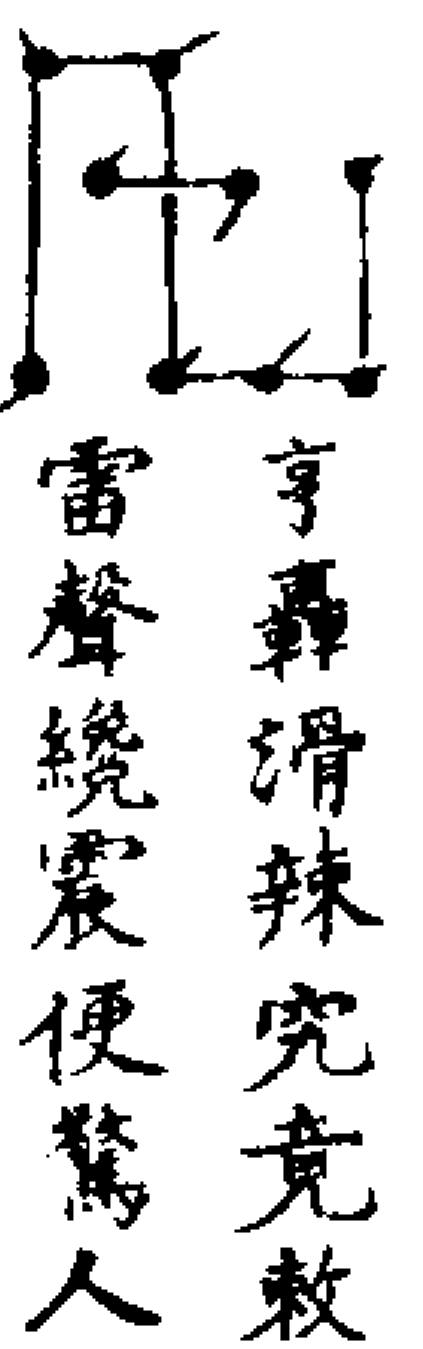 亨轟滑辣究竟敕
雷聲纔震便驚人